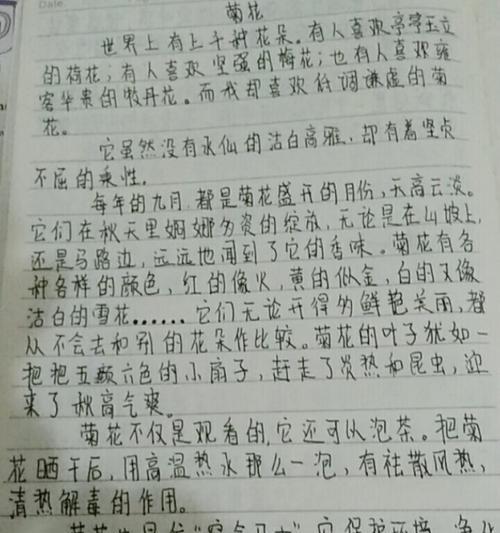 Date
菊花
世界上有上千种花朵。有人喜欢亭亭玉立
的荷花；有人喜欢坚强的梅花；也有人喜欢雍
容华贵的牡丹花。而我却喜欢低调谦虚的菊
花。
它虽然没有水仙的洁白高雅，却有着坚贞
不屈的秉性。
每年的九月，都是菊花盛开的月份，天高云淡。
它们在秋天里婀娜多姿的绽放，无论是在山坡上，
还是马路边，远远地闻到了它的香味。菊花有各
种各样的颜色，红的像火，黄的似金，白的又像
洁白的雪花……它们无论开得多鲜艳美丽，都
从不会去和别的花朵作比较。菊花的叶子犹如一
把把五颜六色的小扇子，赶走了炎热和昆虫，迎
来了秋高气爽。
菊花不仅是观看的，它还可以泡茶。把菊
花晒干后，用高温热水那么一泡，有祛散风热，
清热解毒的作用。